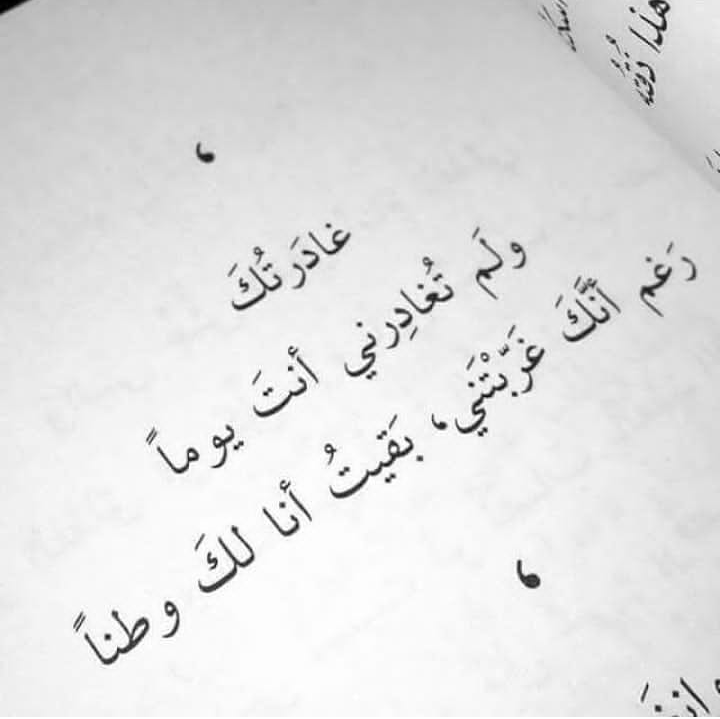 هذا
،
غادَرتُكَ
ولَم تُغادِرني أنتَ يوماً
رَغم أنَّكَ غَرَّبْتَني، بَقيتُ أنا لكَ وطناً
،